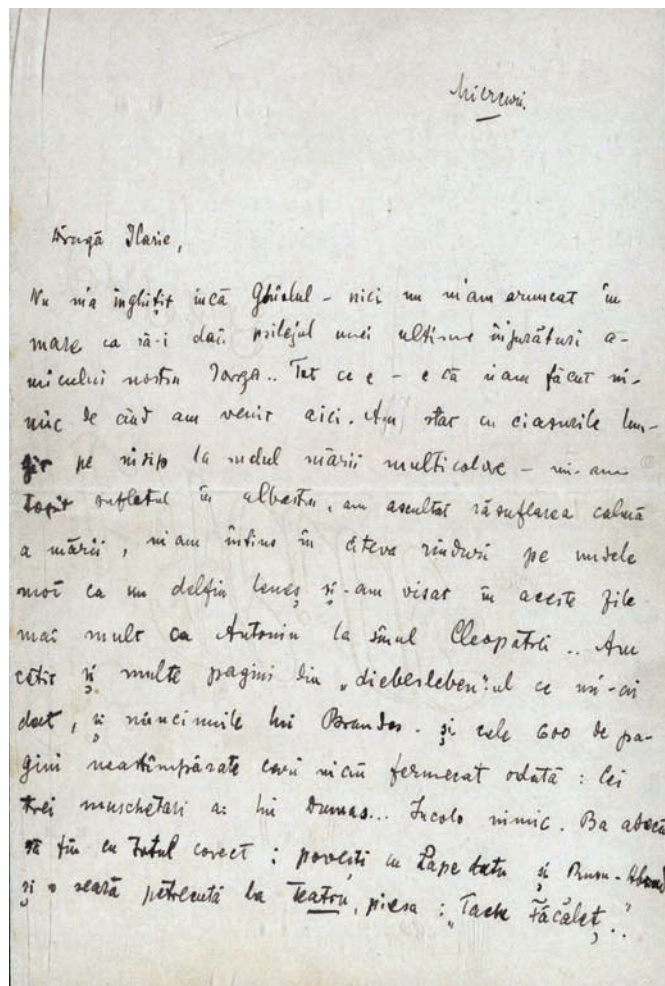 Miercuri.
Dragă Ilarie,
Nu m'a înghițit încă Ghiolul – nici nu m'am aruncat în
mare ca să-i dau prilejul unei ultime înjurături a-
micului nostru Iorga.. Tot ce e – e că n'am făcut ni-
mic de cînd am venit aici. Am stat cu ciasurile lun-
git pe nisip la malul mării multicolore – mi-am
topit sufletul în albastru, am ascultat răsuflarea calmă
a mării, m'am întins în cîteva rînduri pe undele
moi ca un delfin leneș și-am visat în aceste zile
mai mult ca Antoniu la sînul Cleopătrii .. Am
cetit și multe pagini din „diebesleben"-ul ce mi-ai
dat, și nuncimile lui Brandes. și cele 600 de pa-
gini neastîmpărate cari m'au fermecat odată : Cei
trei muschetari a: lui Dumas... Incolo nimic. Ba
să fiu cu totul corect : povești cu Papedatu și
și o seară petrecută la teatru, piesa : „Tache Făcăleț„..